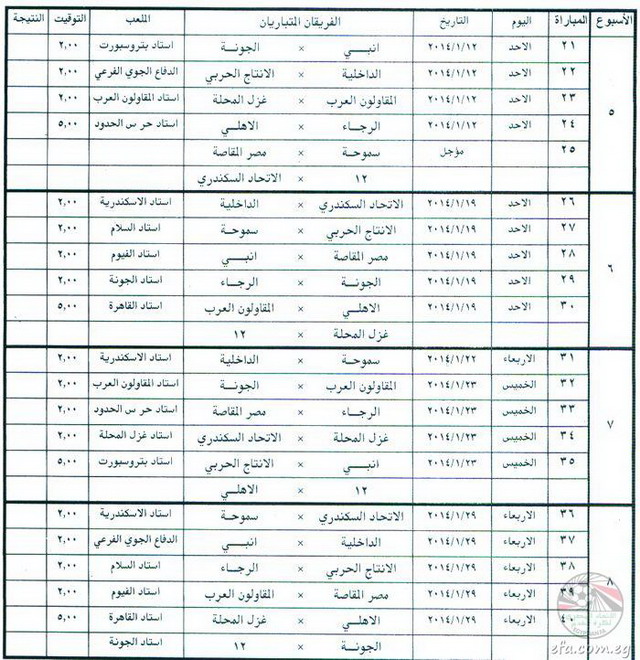 الأسبوع المباراة اليوم التاريخ الفريقان المتباريان الملعب التوقيت النتيجة
٥
٢١ الاحد ٢٠١٤/١/١٢ انبـي × الجونة استاد بتروسبورت ٢,٠٠
٢٢ الاحد ٢٠١٤/١/١٢ الداخلية × الانتاج الحربي الدفاع الجوي الفرعي ٢,٠٠
٢٣ الاحد ٢٠١٤/١/١٢ المقاولون العرب × غزل المحلة استاد المقاولون العرب ٢,٠٠
٢٤ الاحد ٢٠١٤/١/١٢ الرجاء × الاهلي استاد حرس الحدود ٥,٠٠
٢٥ مؤجل سموحة × مصر المقاصة
١٢ × الاتحاد السكندري
٦
٢٦ الاحد ٢٠١٤/١/١٩ الاتحاد السكندري × الداخلية استاد الاسكندرية ٢,٠٠
٢٧ الاحد ٢٠١٤/١/١٩ الانتاج الحربي × سموحة استاد السلام ٢,٠٠
٢٨ الاحد ٢٠١٤/١/١٩ مصر المقاصة × انبـي استاد الفيوم ٢,٠٠
٢٩ الاحد ٢٠١٤/١/١٩ الجونة × الرجاء استاد الجونة ٢,٠٠
٣٠ الاحد ٢٠١٤/١/١٩ الاهلي × المقاولون العرب استاد القاهرة ٥,٠٠
غزل المحلة × ١٢
٧
٣١ الاربعاء ٢٠١٤/١/٢٢ سموحة × الداخلية استاد الاسكندرية ٢,٠٠
٣٢ الخميس ٢٠١٤/١/٢٣ المقاولون العرب × الجونة استاد المقاولون العرب ٢,٠٠
٣٣ الخميس ٢٠١٤/١/٢٣ الرجاء × مصر المقاصة استاد حرس الحدود ٢,٠٠
٣٤ الخميس ٢٠١٤/١/٢٣ غزل المحلة × الاتحاد السكندري استاد غزل المحلة ٢,٠٠
٣٥ الخميس ٢٠١٤/١/٢٣ انبـي × الانتاج الحربي استاد بتروسبورت ٥,٠٠
١٢ × الاهلي
٨
٣٦ الاربعاء ٢٠١٤/١/٢٩ الاتحاد السكندري × سموحة استاد الاسكندرية ٢,٠٠
٣٧ الاربعاء ٢٠١٤/١/٢٩ الداخلية × انبـي الدفاع الجوي الفرعي ٢,٠٠
٣٨ الاربعاء ٢٠١٤/١/٢٩ الانتاج الحربي × الرجاء استاد السلام ٢,٠٠
٣٩ الاربعاء ٢٠١٤/١/٢٩ مصر المقاصة × المقاولون العرب استاد الفيوم ٢,٠٠
٤٠ الاربعاء ٢٠١٤/١/٢٩ الاهلي × غزل المحلة استاد القاهرة ٥,٠٠
الجونة × ١٢ استاد الجونة
efa.com.eg